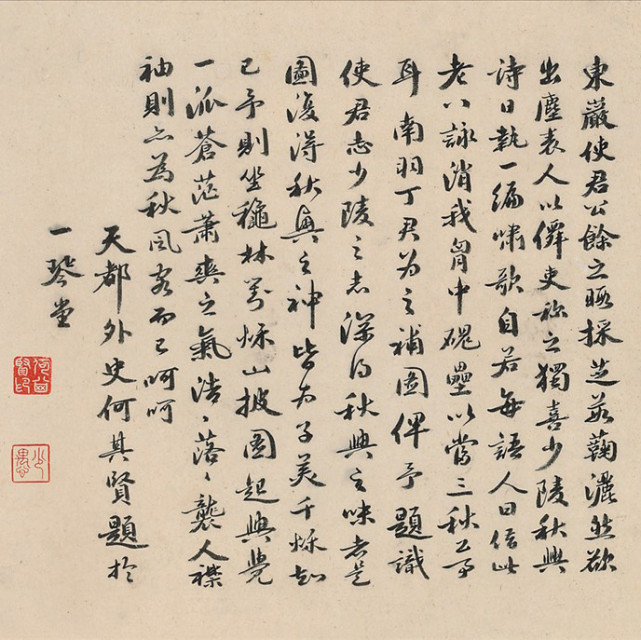 東巖使君公餘之暇採芝蓺蘜灑然欲
出塵表人以僊吏称之獨喜少陵秋興
詩日執一編嘯歌自若每語人曰借此
老八詠消我胷中磈壘以當三秋工
耳南羽丁君為之補圖俾予題識
使君志少陵之志深得秋興之味者是
圖復得秋興之神皆為子美千烁知
己予則坐穐林茅烁山披圖起興覺
一派蒼茫蕭爽之氣浩、落、襲人襟
袖則亦為秋風客而已呵呵
天都外史何其賢題於
一琴堂
何其賢印
少愚